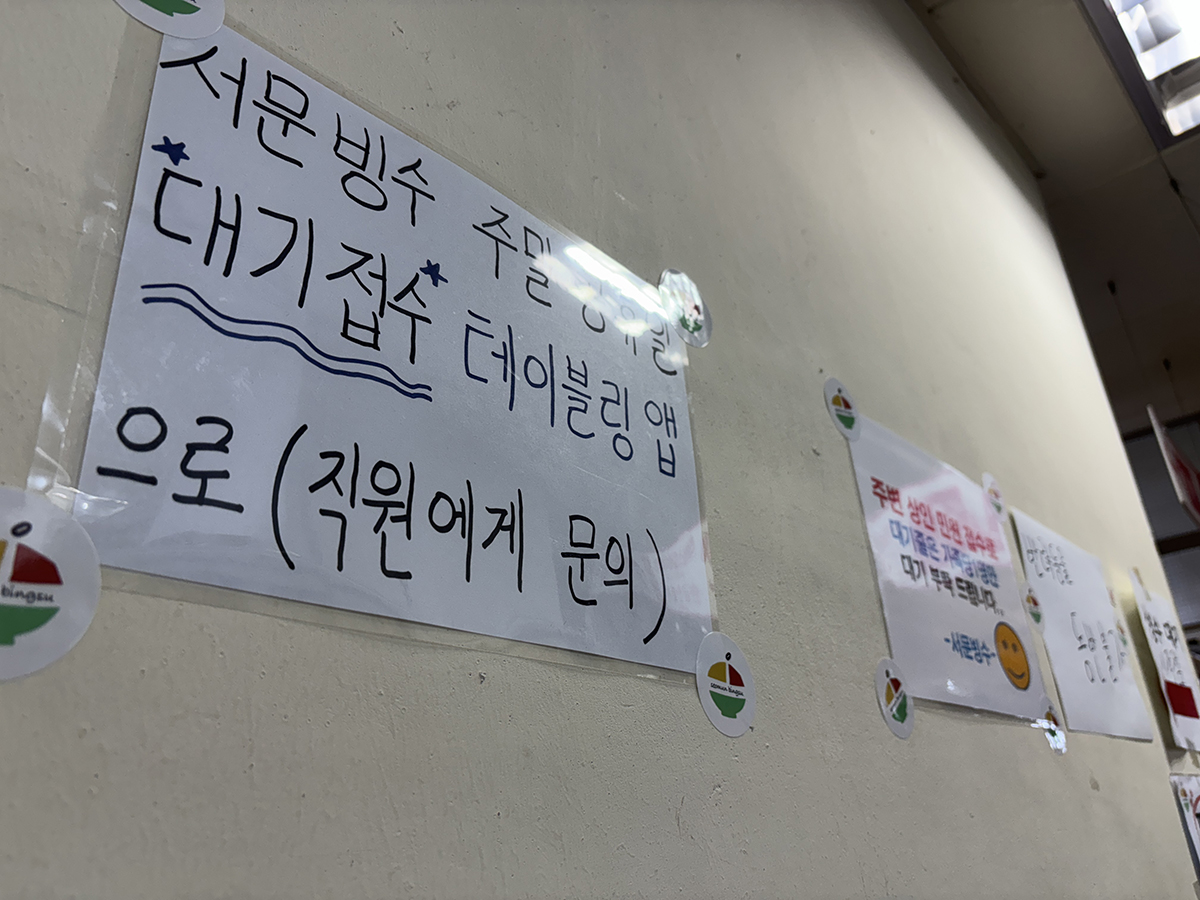 서문빙수 주말 공휴일
대기접수 테이블링 앱
으로 (직원에게 문의)
bingsu
seomun bingsu
주변 상인 민원 접수로
대기줄은 가족당 1명만
대기 부탁 드립니다...
-서문빙수-